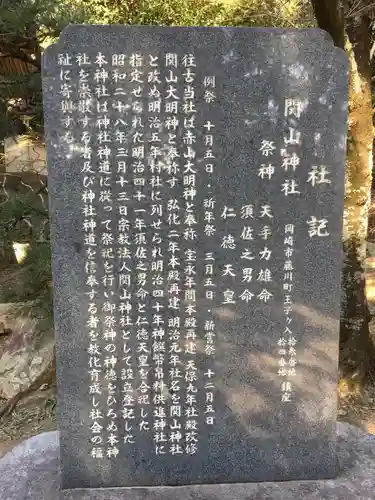 社記
関山神社
岡崎市藤川町王子ヶ入 拾参番地
拾四番地 鎮座
祭神 天手力雄命
須佐之男命
仁徳天皇
例祭 十月五日・祈年祭 三月五日・新嘗祭 十二月五日
往古当社は赤山大明神と奉称 宝永年間本殿再建 天保九年社殿改修
関山大明神と奉称す 弘化二年本殿再建 明治元年社名を関山神社
と改め明治五年村社に列せられ明治四十年神饌幣帛料供進神社に
指定せられた明治四十一年須佐之男命と仁徳天皇を合祀した
昭和二十八年三月十三日宗教法人関山神社として設立登記した
本神社は神社神道に従って祭祀を行い御祭神の神徳をひろめ本神
社を崇敬する者及び神社神道を信奉する者を教化育成し社会の福
祉に寄與する